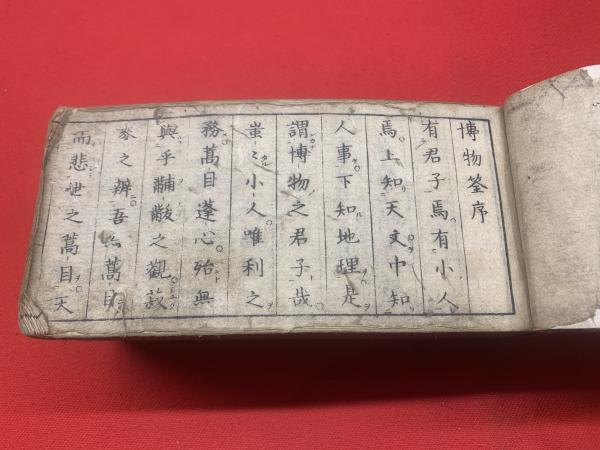 博物筌序
有君子焉有小人
焉上知天文中知
人事下知地理是
謂博物之君子哉
蚩〻小人唯利之
務蒿目蓬心殆無
與乎黼黻之觀菽
麥之辨吾 蒿目
而悲世之蒿目天